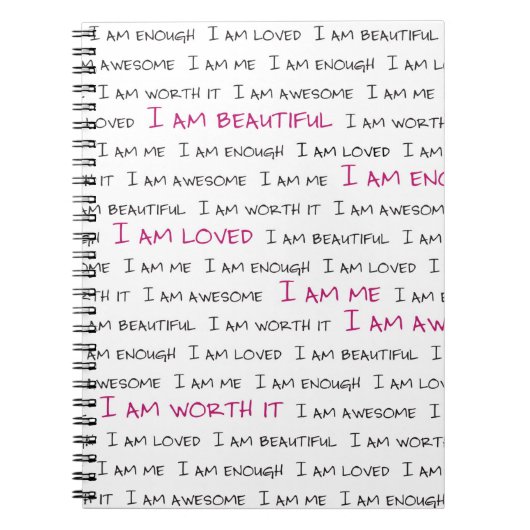 I AM ENOUGH I AM LOVED I AM BEAUTIFUL
AM AWESOME I AM ME I AM ENOUGH I AM
I AM WORTH IT I AM AWESOME I AM ME
LOVED I AM BEAUTIFUL I AM WORTH
I AM ME I AM ENOUGH I AM LOVED I AM
IT I AM AWESOME I AM ME I AM ENO
AM BEAUTIFUL I AM WORTH IT I AM AWESOM
I AM LOVED I AM BEAUTIFUL I AM
I AM ME I AM ENOUGH I AM LOVED I
TH IT I AM AWESOME I AM ME I AM
AM BEAUTIFUL I AM WORTH IT I AM AW
AM ENOUGH I AM LOVED I AM BEAUTIFUL I
AWESOME I AM ME I AM ENOUGH I AM LOV
I AM WORTH IT I AM AWESOME I
I AM LOVED I AM BEAUTIFUL I AM WORT
I AM ME I AM ENOUGH I AM LOVED I AM
IT I AM AWESOME I AM ME I AM ENOUGH